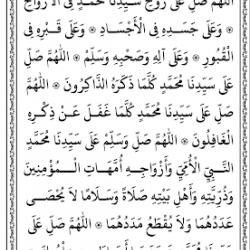 اللَّهُمَّ صَلِّ عَلَى رُوحِ سَيِّدِنَا مُحَمَّدٍ فِي الْأَرْوَاحِ
۞ وَعَلَى جَسَدِهِ فِي الْأَجْسَادِ ۞ وَعَلَى قَبْرِهِ فِي
الْقُبُورِ ۞ وَعَلَى آلِهِ وَصَحْبِهِ وَسَلِّمْ ۞ اللَّهُمَّ صَلِّ
عَلَى سَيِّدِنَا مُحَمَّدٍ كُلَّمَا ذَكَرَهُ الذَّاكِرُونَ ۞ اللَّهُمَّ
صَلِّ عَلَى سَيِّدِنَا مُحَمَّدٍ كُلَّمَا غَفَلَ عَنْ ذِكْرِهِ
الْغَافِلُونَ ۞ اللَّهُمَّ صَلِّ وَسَلِّمْ عَلَى سَيِّدِنَا مُحَمَّدٍ
النَّبِيِّ الْأُمِّيِّ وَأَزْوَاجِهِ أُمَّهَاتِ الْمُؤْمِنِينَ
وَذُرِّيَّتِهِ وَأَهْلِ بَيْتِهِ صَلَاةً وَسَلَامًا لَا يُحْصَى
عَدَدُهُمَا وَلَا يُقْطَعُ مَدَدُهُمَا ۞ اللَّهُمَّ صَلِّ عَلَى